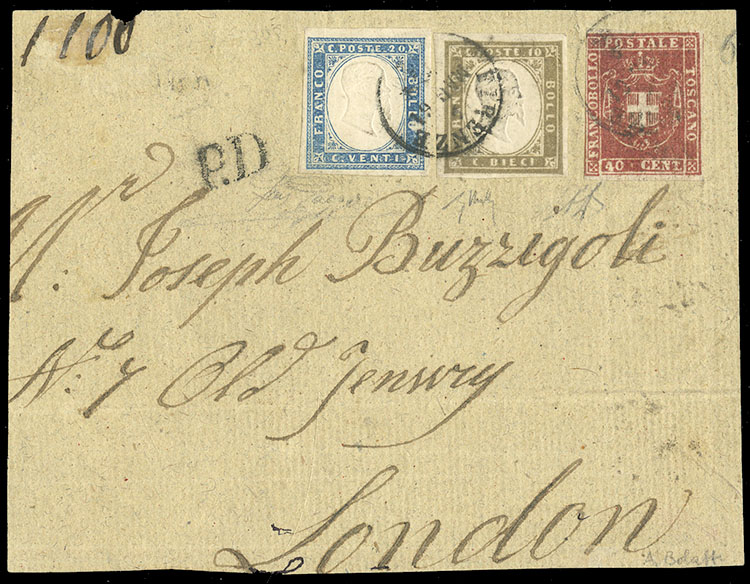 1100
C. POSTE 20
FRANCO
BOLLO
C. VENTI
C. POSTE 10
BOLLO
C. DIECI
FRANCOBOLLO
POSTALE
TOSCANO
40 CENT
FIRENZE
P.D
Mr. Joseph Buzzigoli
No. 7 Old Jewry
London